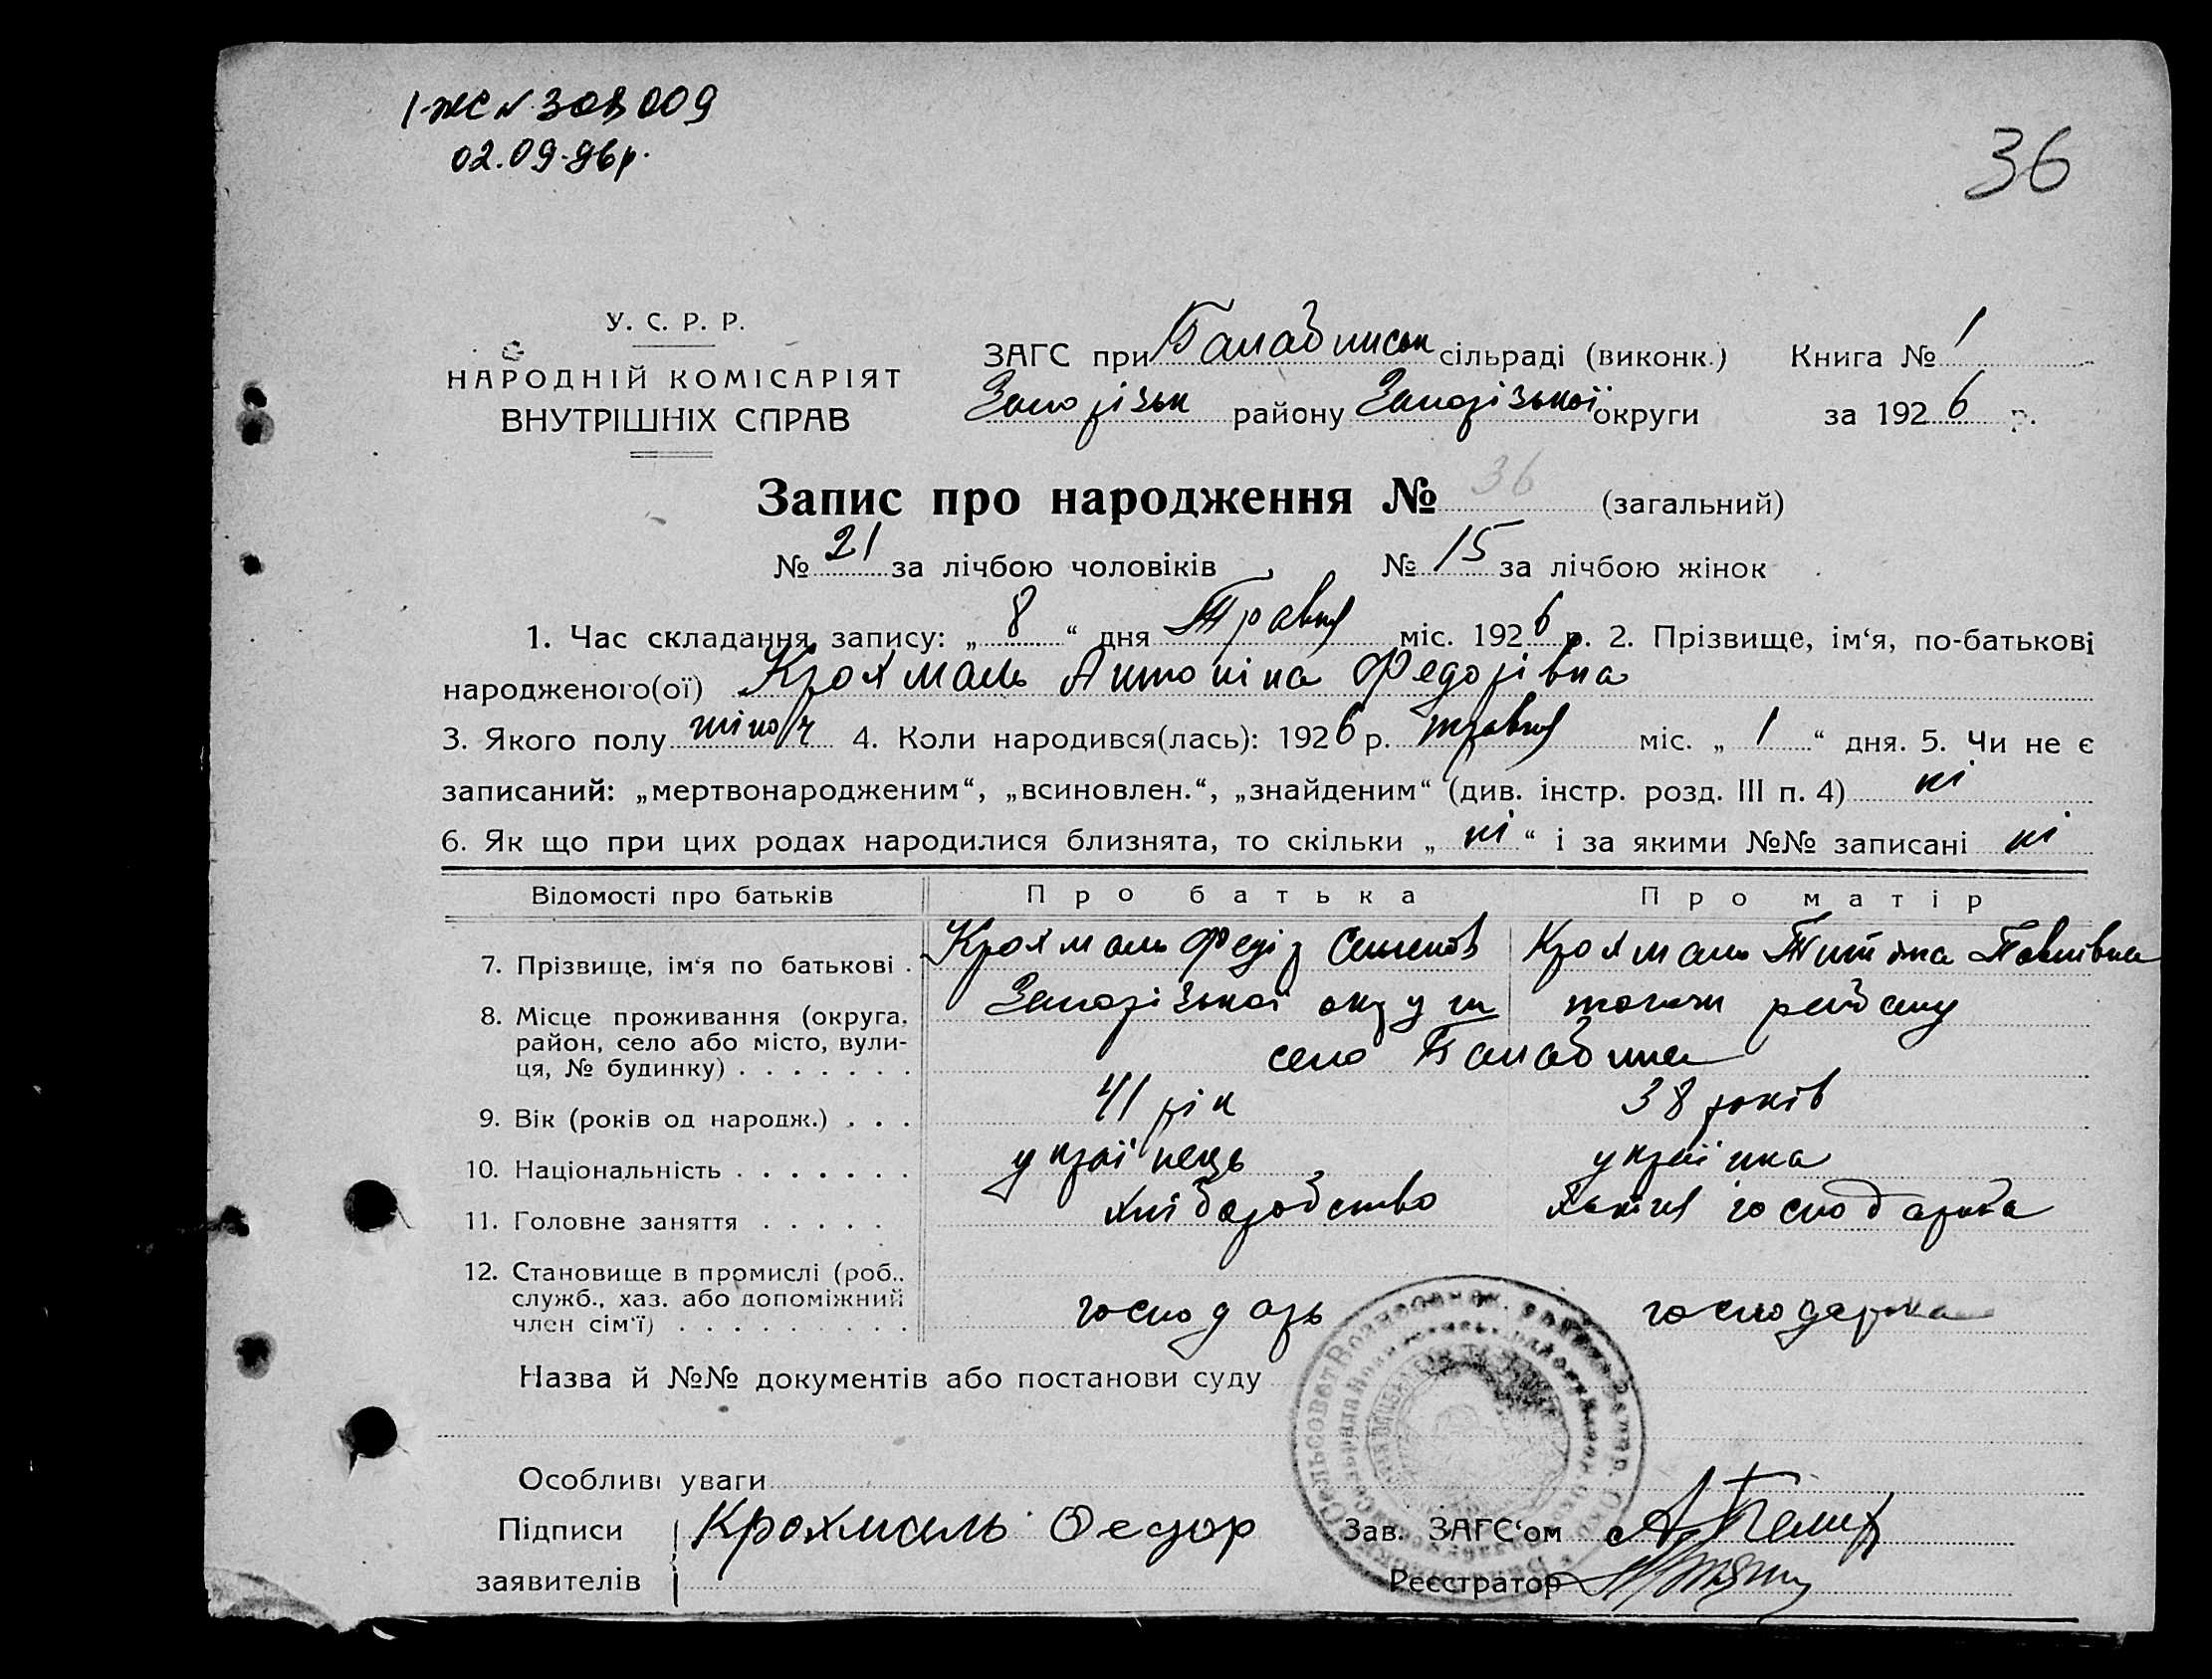 І-ЖС № 303009
02.09.96р.
36
У. С. Р. Р.
НАРОДНІЙ КОМІСАРІЯТ
ВНУТРІШНІХ СПРАВ
ЗАГС при Балабинськ сільраді (виконк.) Книга № 1
Запорізьк району Запорізької округи за 1926 р.
Запис про народження № 36 (загальний)
№ 21 за лічбою чоловіків № 15 за лічбою жінок
1. Час складання запису: „ 8 “ дня Травня міс. 1926 р. 2. Прізвище, ім‘я, по-батькові
народженого(ої) Крохмаль Антоніна Федорівна
3. Якого полу жіноч 4. Коли народився(лась): 1926 р. травня міс. „ 1 “ дня. 5. Чи не є
записаний: „мертвонародженим“, „всиновлен.“, „знайденим“ (див. інстр. розд. III п. 4) ні
6. Як що при цих родах народилися близнята, то скільки „ ні “ і за якими №№ записані ні
Відомості про батьків Про батька Про матір
7. Прізвище, ім‘я по батькові . Крохмаль Федір Семенов Крохмаль Титяна Павлівна
8. Місце проживання (округа, Запорізької округи того ж району
район, село або місто, вули-
ця, № будинку) . . . . . . . село Балабина
9. Вік (років од народж.) . . . 41 рік 38 років
10. Національність . . . . . . . українець українка
11. Головне заняття . . . . . хліборобство хатня господарка
12. Становище в промислі (роб..
служб., хаз. або допоміжний господарь господарка
член сім‘ї) . . . . . . . . .
Назва й №№ документів або постанови суду
Особливі уваги
Підписи Крохмаль Федор Зав. ЗАГС‘ом
заявителів Реєстратор